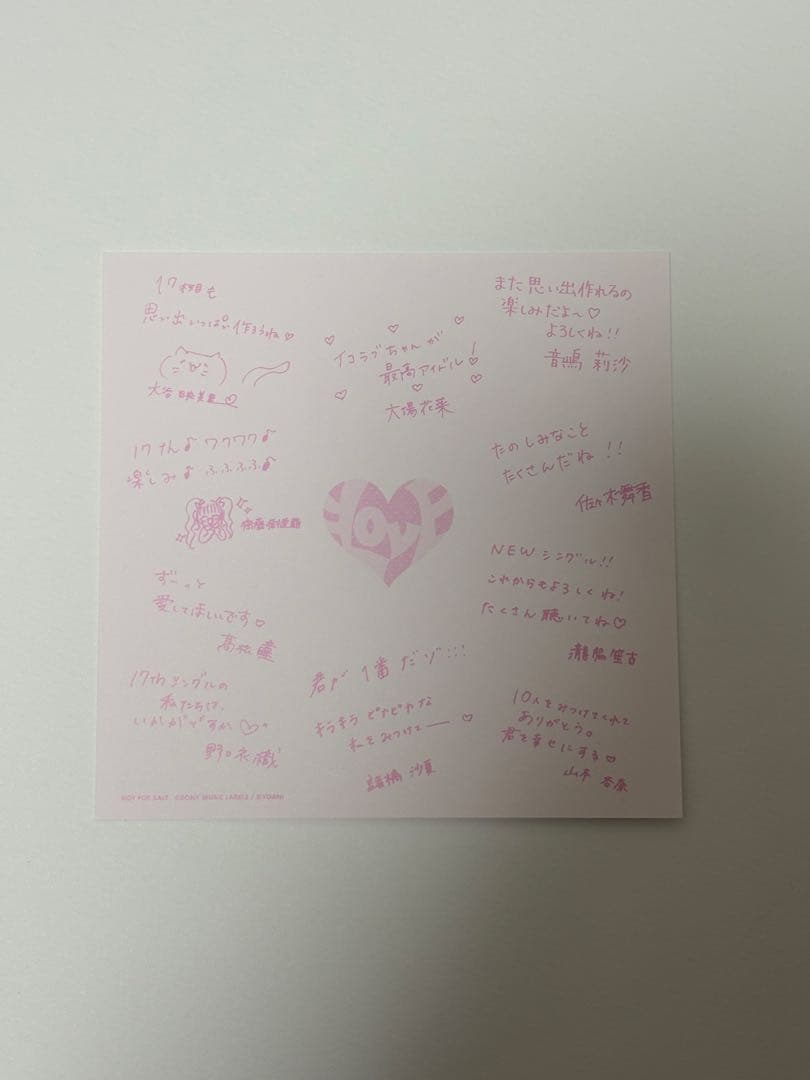 17枚目も
思い出いっぱい作ろうね♡
大谷映美里
イコラブちゃんが
最高アイドル!
大場花菜
また思い出作れるの
楽しみだよ〜♡
よろしくね!!
音嶋莉沙
17th♪ワクワク♪
楽しみ♪ふふふふ♪
齋藤樹愛羅
たのしみなこと
たくさんだね!!
佐々木舞香
=LOVE
NEWシングル!!
これからもよろしくね!
たくさん聴いてね♡
瀧脇笙古
ずーっと
愛してほしいです♡
髙松瞳
17thシングルの
私たちは、
いかがですか♡。
野口衣織
君が1番だゾ!!!
キラキラ
私をみつけてー♡
諸橋沙夏
10人をみつけてくれて
ありがとう。
君を幸せにする♡
山本杏奈
NOT FOR SALE ©SONY MUSIC LABELS / ©YOANI